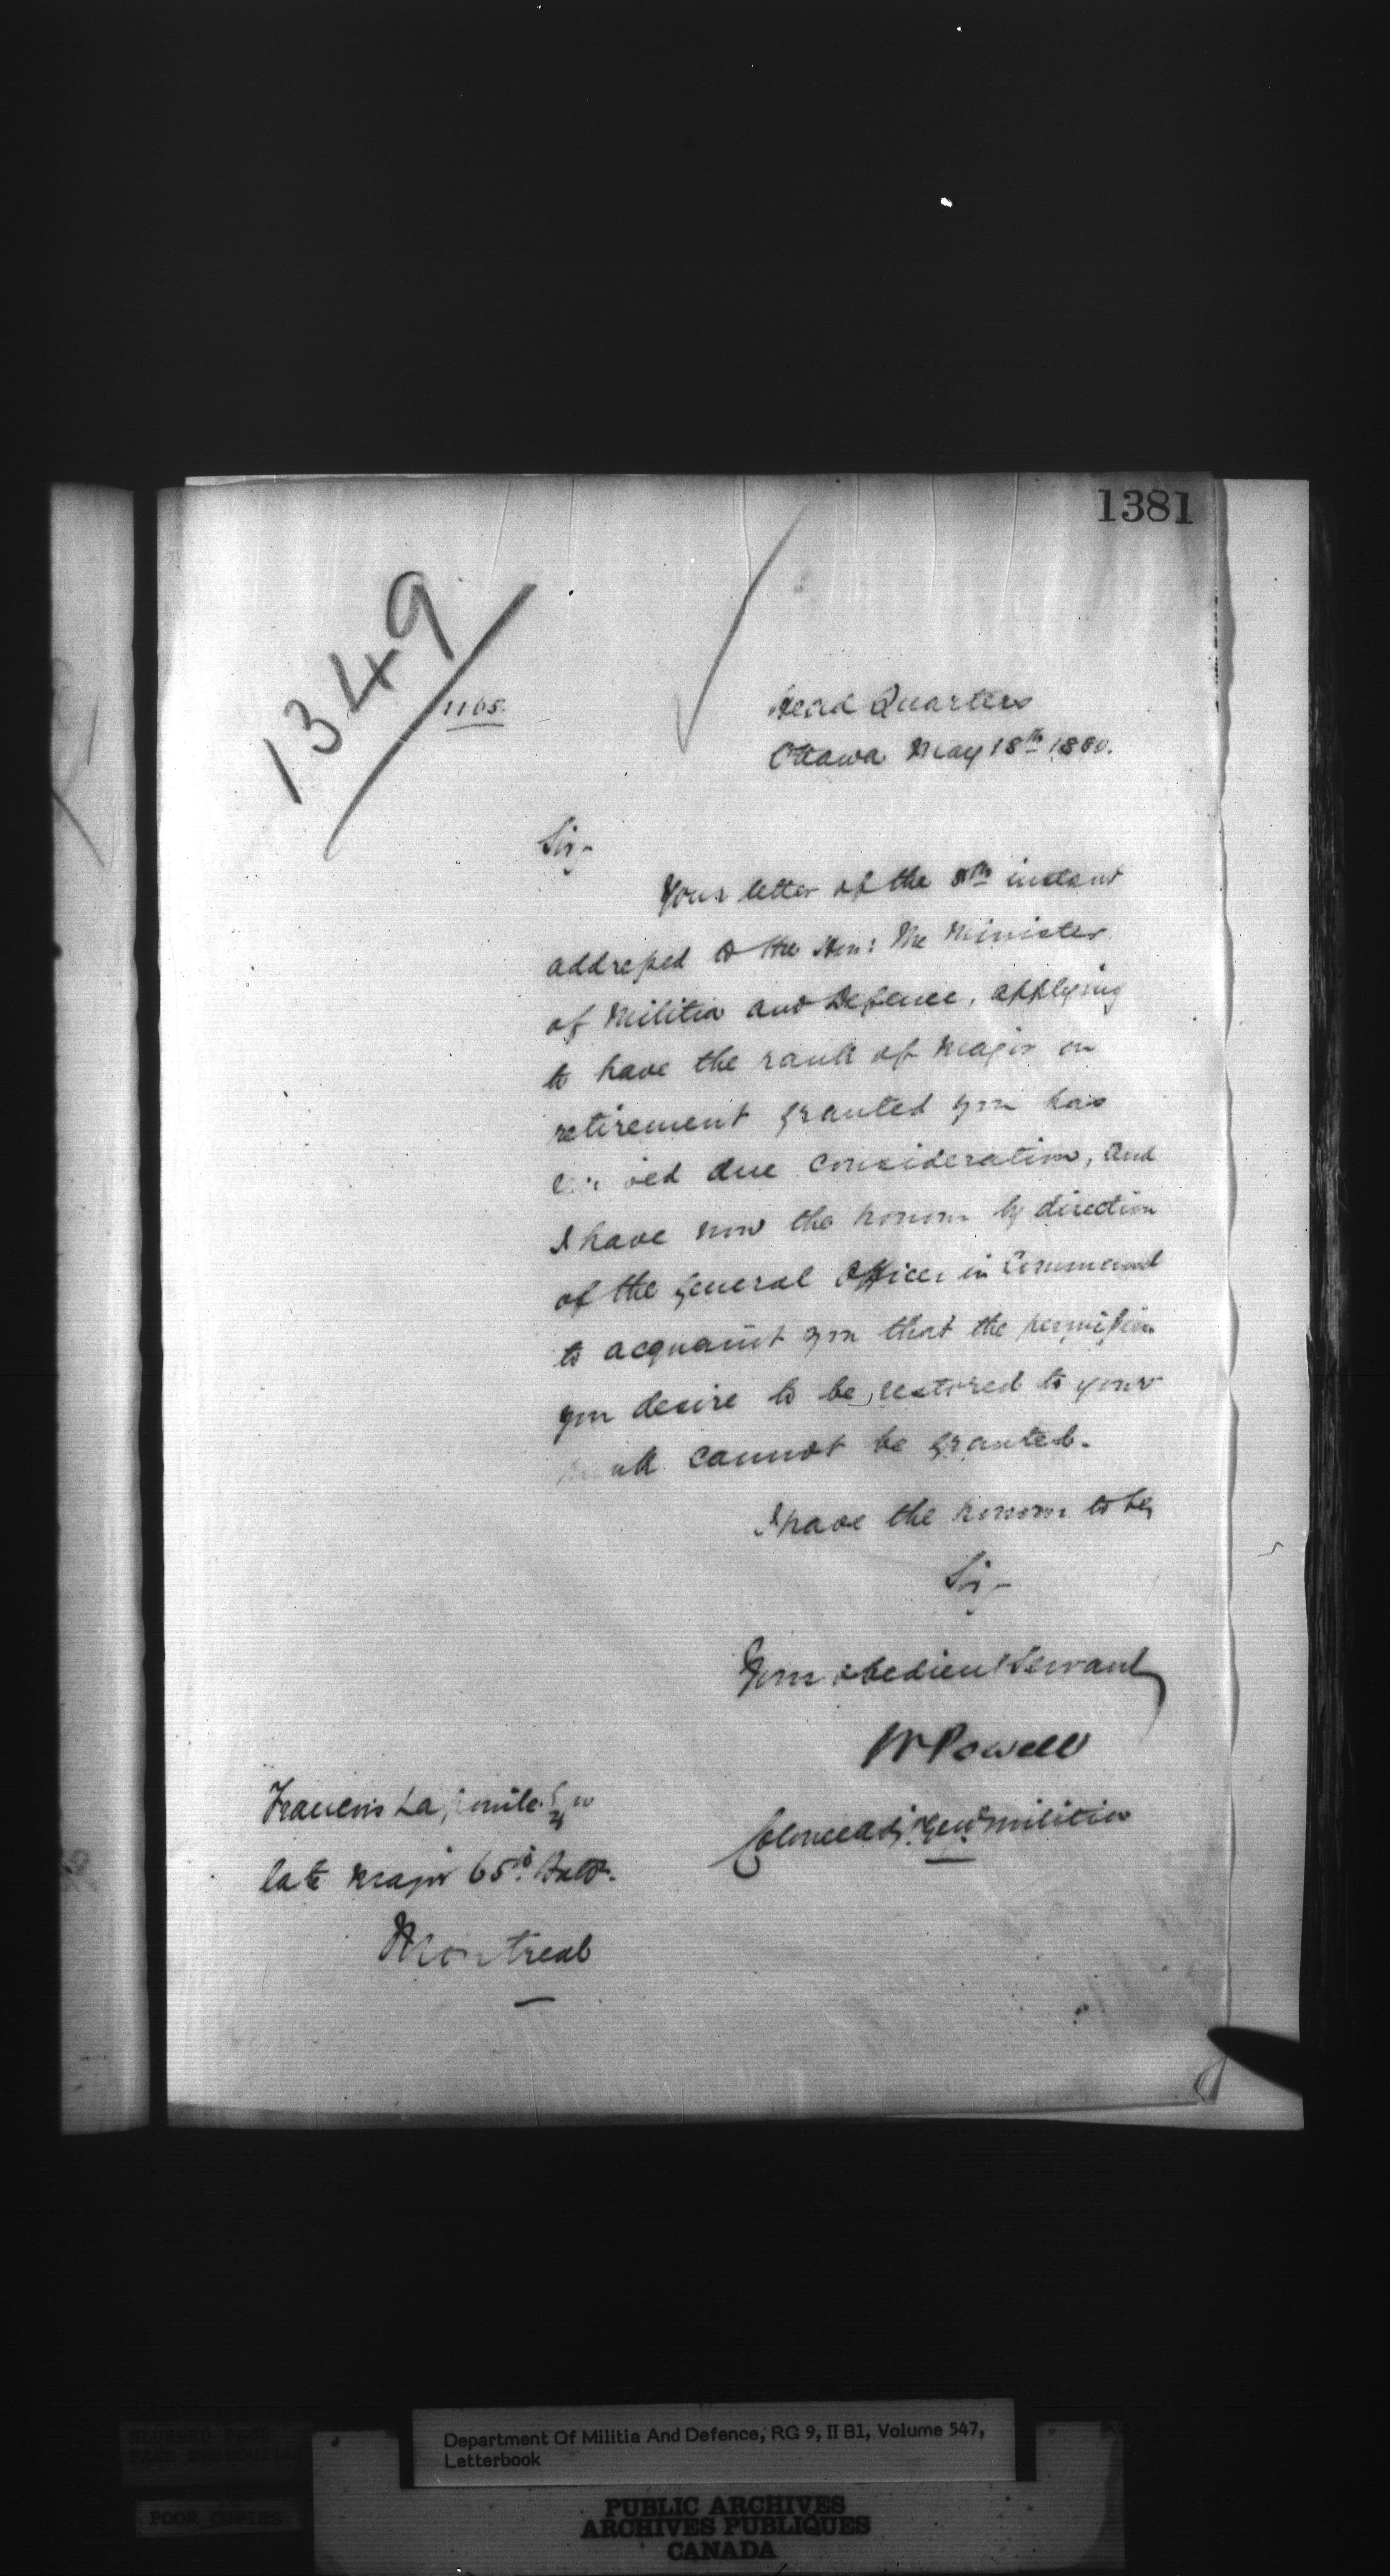 1381
1349
1165.
Head Quarters
Ottawa May 18th 1880.
Sir,
Your letter of the 8th instant
addressed to the Hon: the Minister
of Militia and Defence, applying
to have the rank of Major on
retirement granted you has
due consideration, and
I have now the honour by direction
of the General Officer in Command
to acquaint you that the permission
you desire to be restored to your
rank cannot be granted.
I have the honour to be,
Sir,
Your obedient Servant
W Powell
Colonel Adjt. Genl. Militia
Francois
late Major 65th Batt.
Montreal
Department Of Militia And Defence, RG 9, II B1, Volume 547,
Letterbook
BLURRED PAGE
POOR COPIES
PUBLIC ARCHIVES
ARCHIVES PUBLIQUES
CANADA